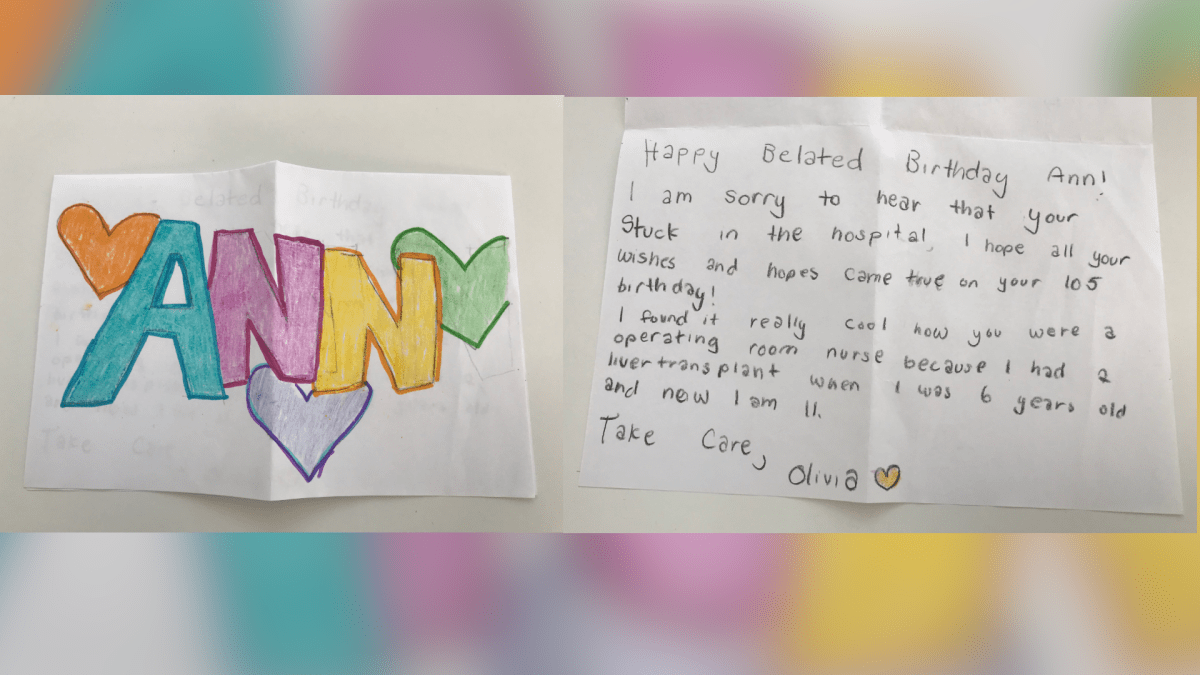 ANN
Happy Belated Birthday Ann!
I am sorry to hear that your
Stuck in the hospital, I hope all your
wishes and hopes came true on your 105
birthday!
I found it really cool how you were a
operating room nurse because I had a
liver transplant when I was 6 years old
and now I am 11.
Take Care,
Olivia